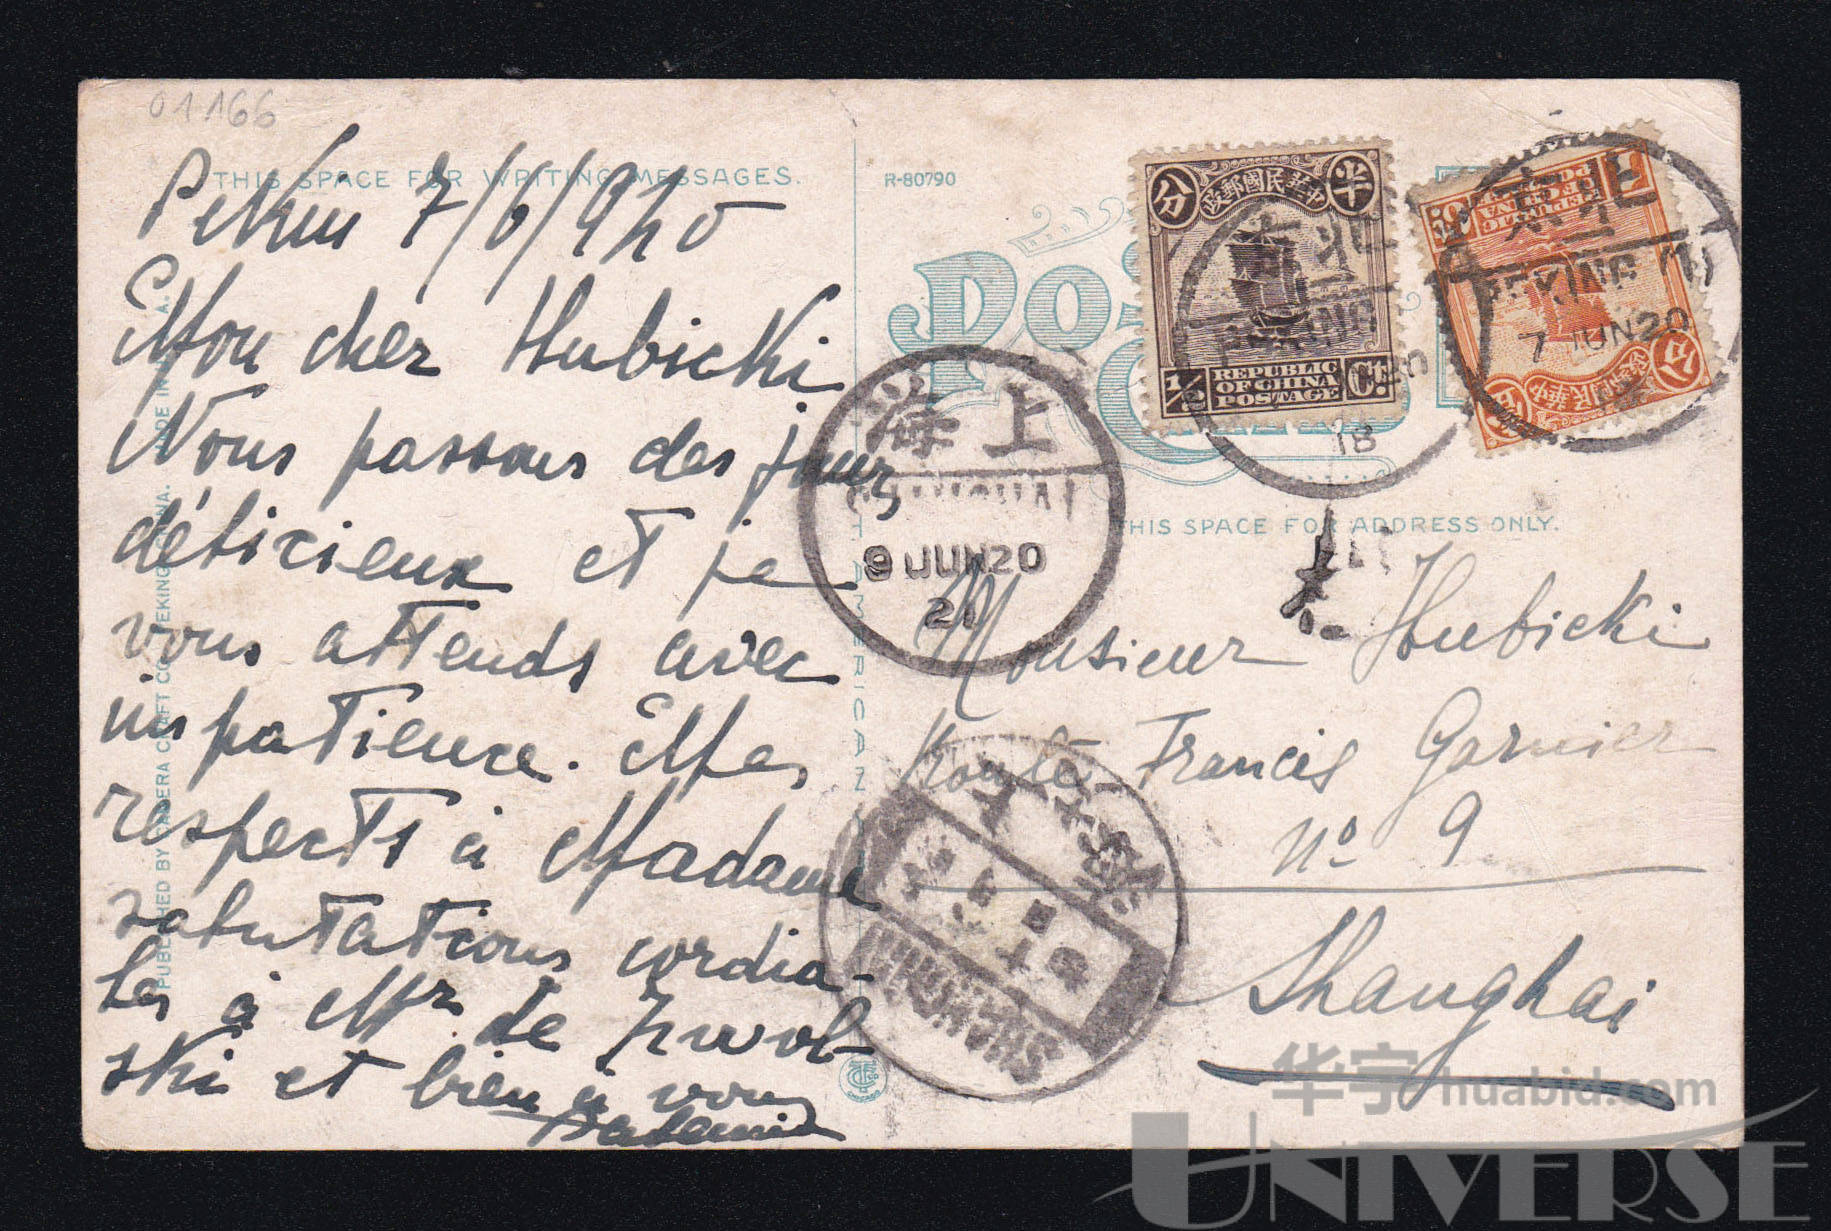 01166
THIS SPACE FOR WRITING MESSAGES.
Pekin 7/6/920
Mon cher Hubicki
Nous passons des jours
délicieux et je
vous attends avec
impatience. Mes
respects à Madame
salutations cordia-
les à Mr de
ski et bien à vous
R-80790
POST
THIS SPACE FOR ADDRESS ONLY.
Monsieur Hubicki
Route Francis Garnier
No 9
Shanghai
中華民國郵政
半
分
1/2
REPUBLIC
OF CHINA
POSTAGE
Ct.
北京
PEKING
18
北京
PEKING (1)
7 JUN 20
上海
SHANGHAI
9 JUN 20
21
SHANGHAI
AMERICAN
PUBLISHED BY CAMERA CRAFT CO. PEKING, CHINA. MADE IN U.S.A.
华宇 huabid.com
UNIVERSE